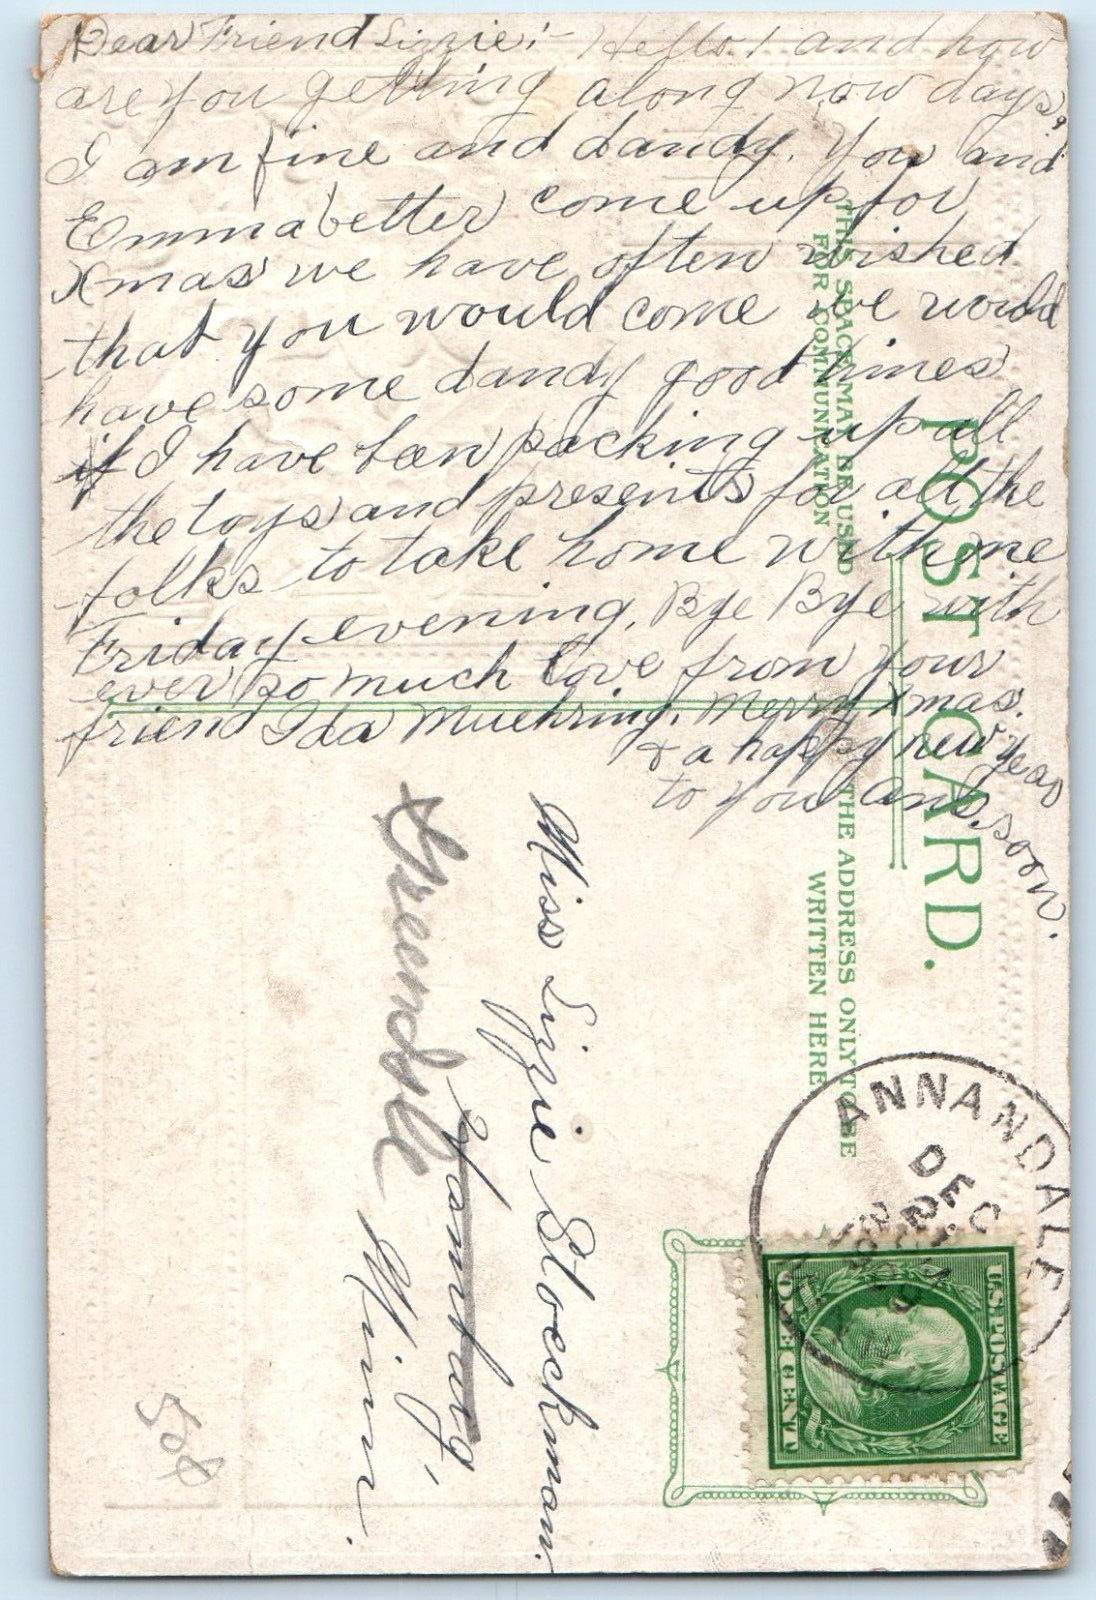 Dear Friend Lizzie:- Hello! and how
are you getting along now days?
I am fine and dandy. You and
Emma better come up for
Xmas we have often wished
that you would come we would
have some dandy good times
if I have been packing up all
the toys and presents for all the
folks to take home with me
Friday evening. Bye Bye with
ever so much love from your
friend Ida Muehring. Merry Xmas.
& a happy new year
to you ans. soon.
POST CARD.
THIS SPACE MAY BE USED
FOR COMMUNICATION
THE ADDRESS ONLY TO BE
WRITTEN HERE
ANNANDALE
DEC
MINN.
U.S. POSTAGE
ONE CENT
Miss Lizzie Stoeckman.
Hamburg,
Greenisle
Minn.
508